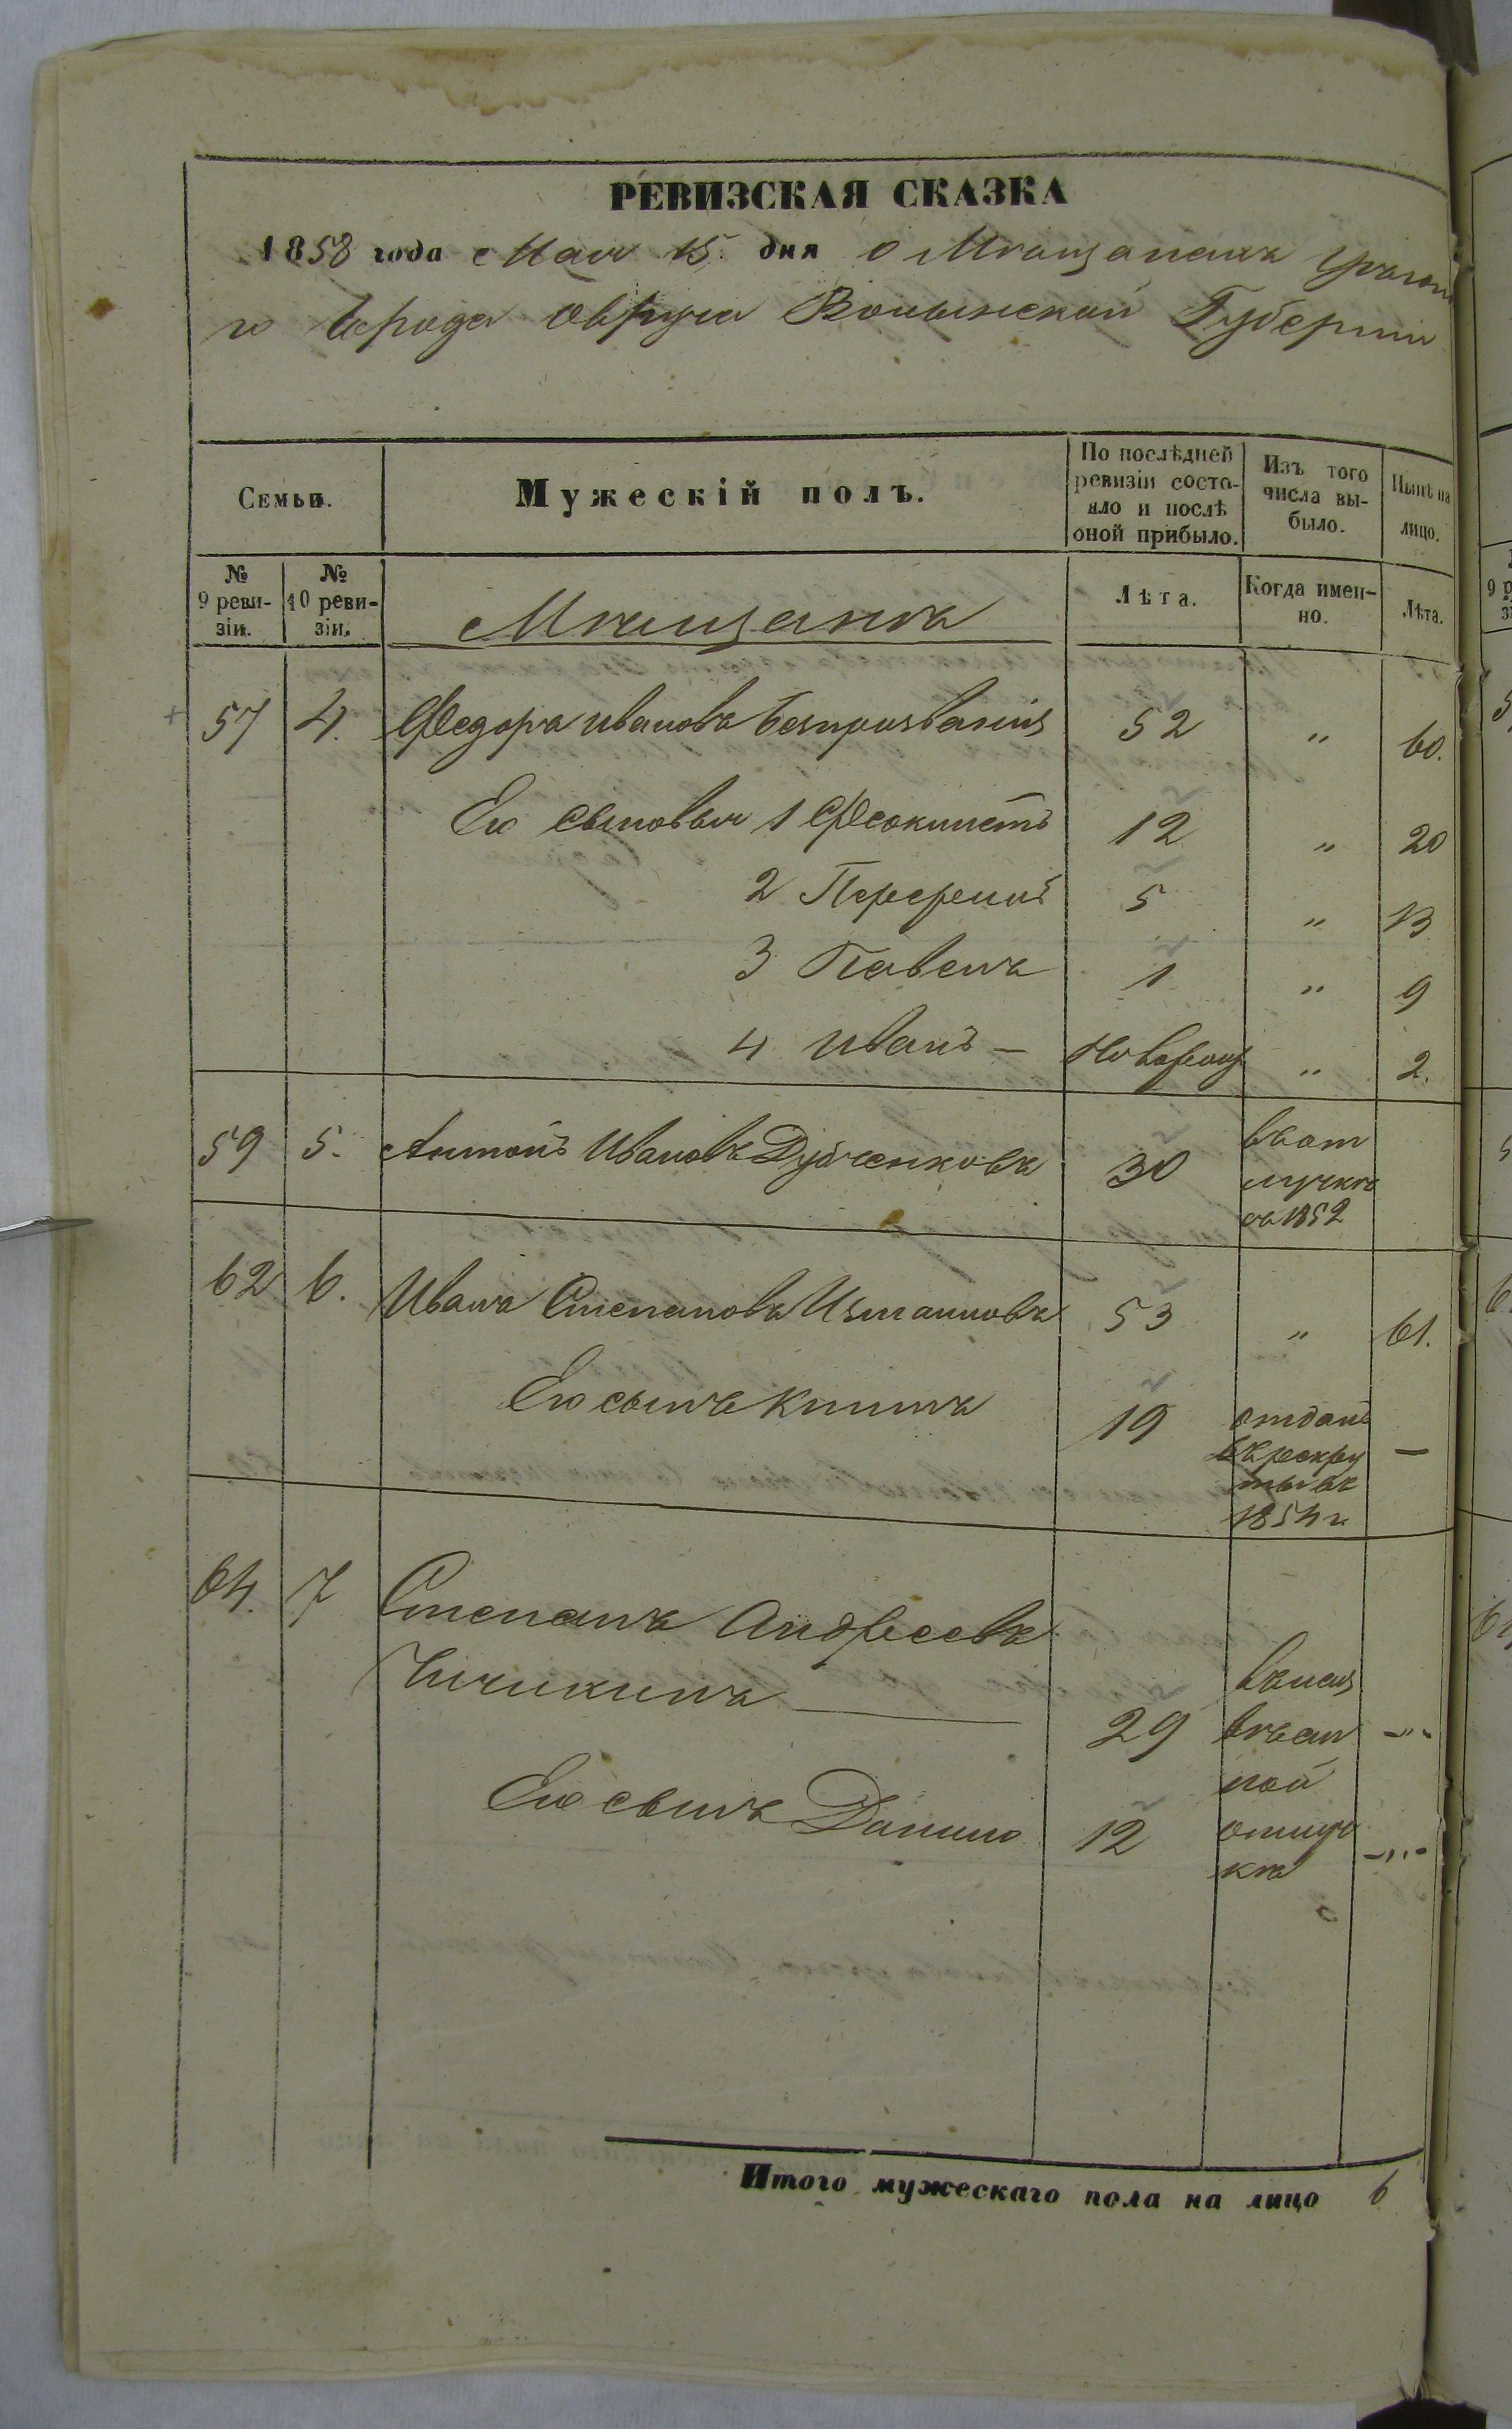 РЕВИЗСКАЯ СКАЗКА
1858 года Мая 15 дня о Мѣщанахъ
го города Овруча Волынской Губерніи
Семьи.
Мужескій полъ.
По послѣдней ревизіи состояло и послѣ оной прибыло.
Изъ того числа выбыло.
Нынѣ на лицо.
№ 9 ревизіи.
№ 10 ревизіи.
Мѣщанъ
Лѣта.
Когда именно.
Лѣта.
57 4. Федоръ Ивановъ 52 " 60.
Его сыновья 1 Феоктистъ 12 " 20
2 5 " 13
3 Павелъ 1 " 9
4 Иванъ — новорожд " 2.
59 5. Антонъ Ивановъ Дубченковъ 30 въ от
лучкѣ
съ 1852
62 6. Иванъ Степановъ 53 " 61.
Его сынъ 19 отданъ —
въ рекру
ты въ
1854 г.
64. 7 Степанъ Андреевъ
Чичикинъ — 29 "
Его сынъ Данило 12 отлуч "
кѣ
Итого мужескаго пола на лицо 6